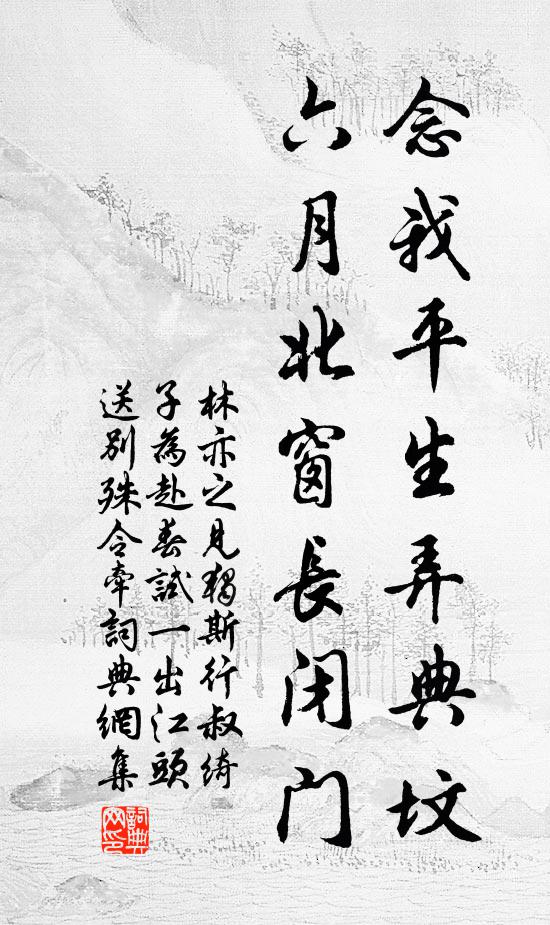 念我平生弄典墳
六月北窗長閉門
林亦之見獨斯行叔綺
子為赴春試一出江頭
送別殊令牽詞典網集
詞典網印